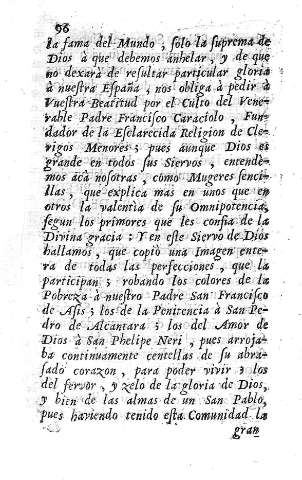 56
la fama del Mundo, ſolo la ſuprema de
Dios à que debemos anhelar, y de que
no dexarà de reſultar particular gloria
à nueſtra Eſpaña, nos obliga à pedir à
Vueſtra Beatitud por el Culto del Vene-
rable Padre Franciſco Caraciolo, Fun-
dador de la Eſclarecida Religion de Cle-
rigos Menores; pues aunque Dios es
grande en todos ſus Siervos, entendè-
mos acà noſotras, como Mugeres ſenci-
llas, que explica mas en unos que en
otros la valentìa de ſu Omnipotencia,
ſegun los primores que les confia de la
Divina gracia: Y en eſte Siervo de Dios
hallamos, que copiò una Imagen ente-
ra de todas las perfecciones, que la
participan; robando los colores de la
Pobreza à nueſtro Padre San Franciſco
de Aſis; los de la Penitencia à San Pe-
dro de Alcantara; los del Amor de
Dios à San Phelipe Neri, pues arroja-
ba continuamente centellas de ſu abra-
ſado corazon, para poder vivir; los
del fervor, y zelo de la gloria de Dios,
y bien de las almas de un San Pablo,
pues haviendo tenido eſta Comunidad la
gran